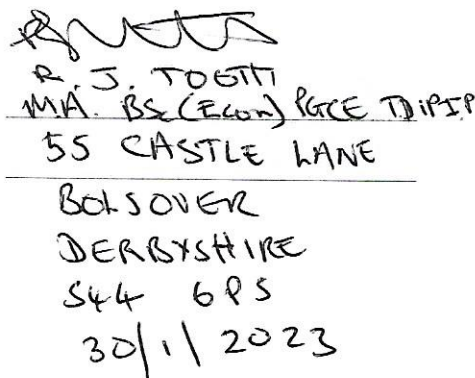 R. J. TOGHI
MA. BSc (Econ) PGCE TDiPIP
55 CASTLE LANE
BOLSOVER
DERBYSHIRE
S44 6PS
30/1/2023